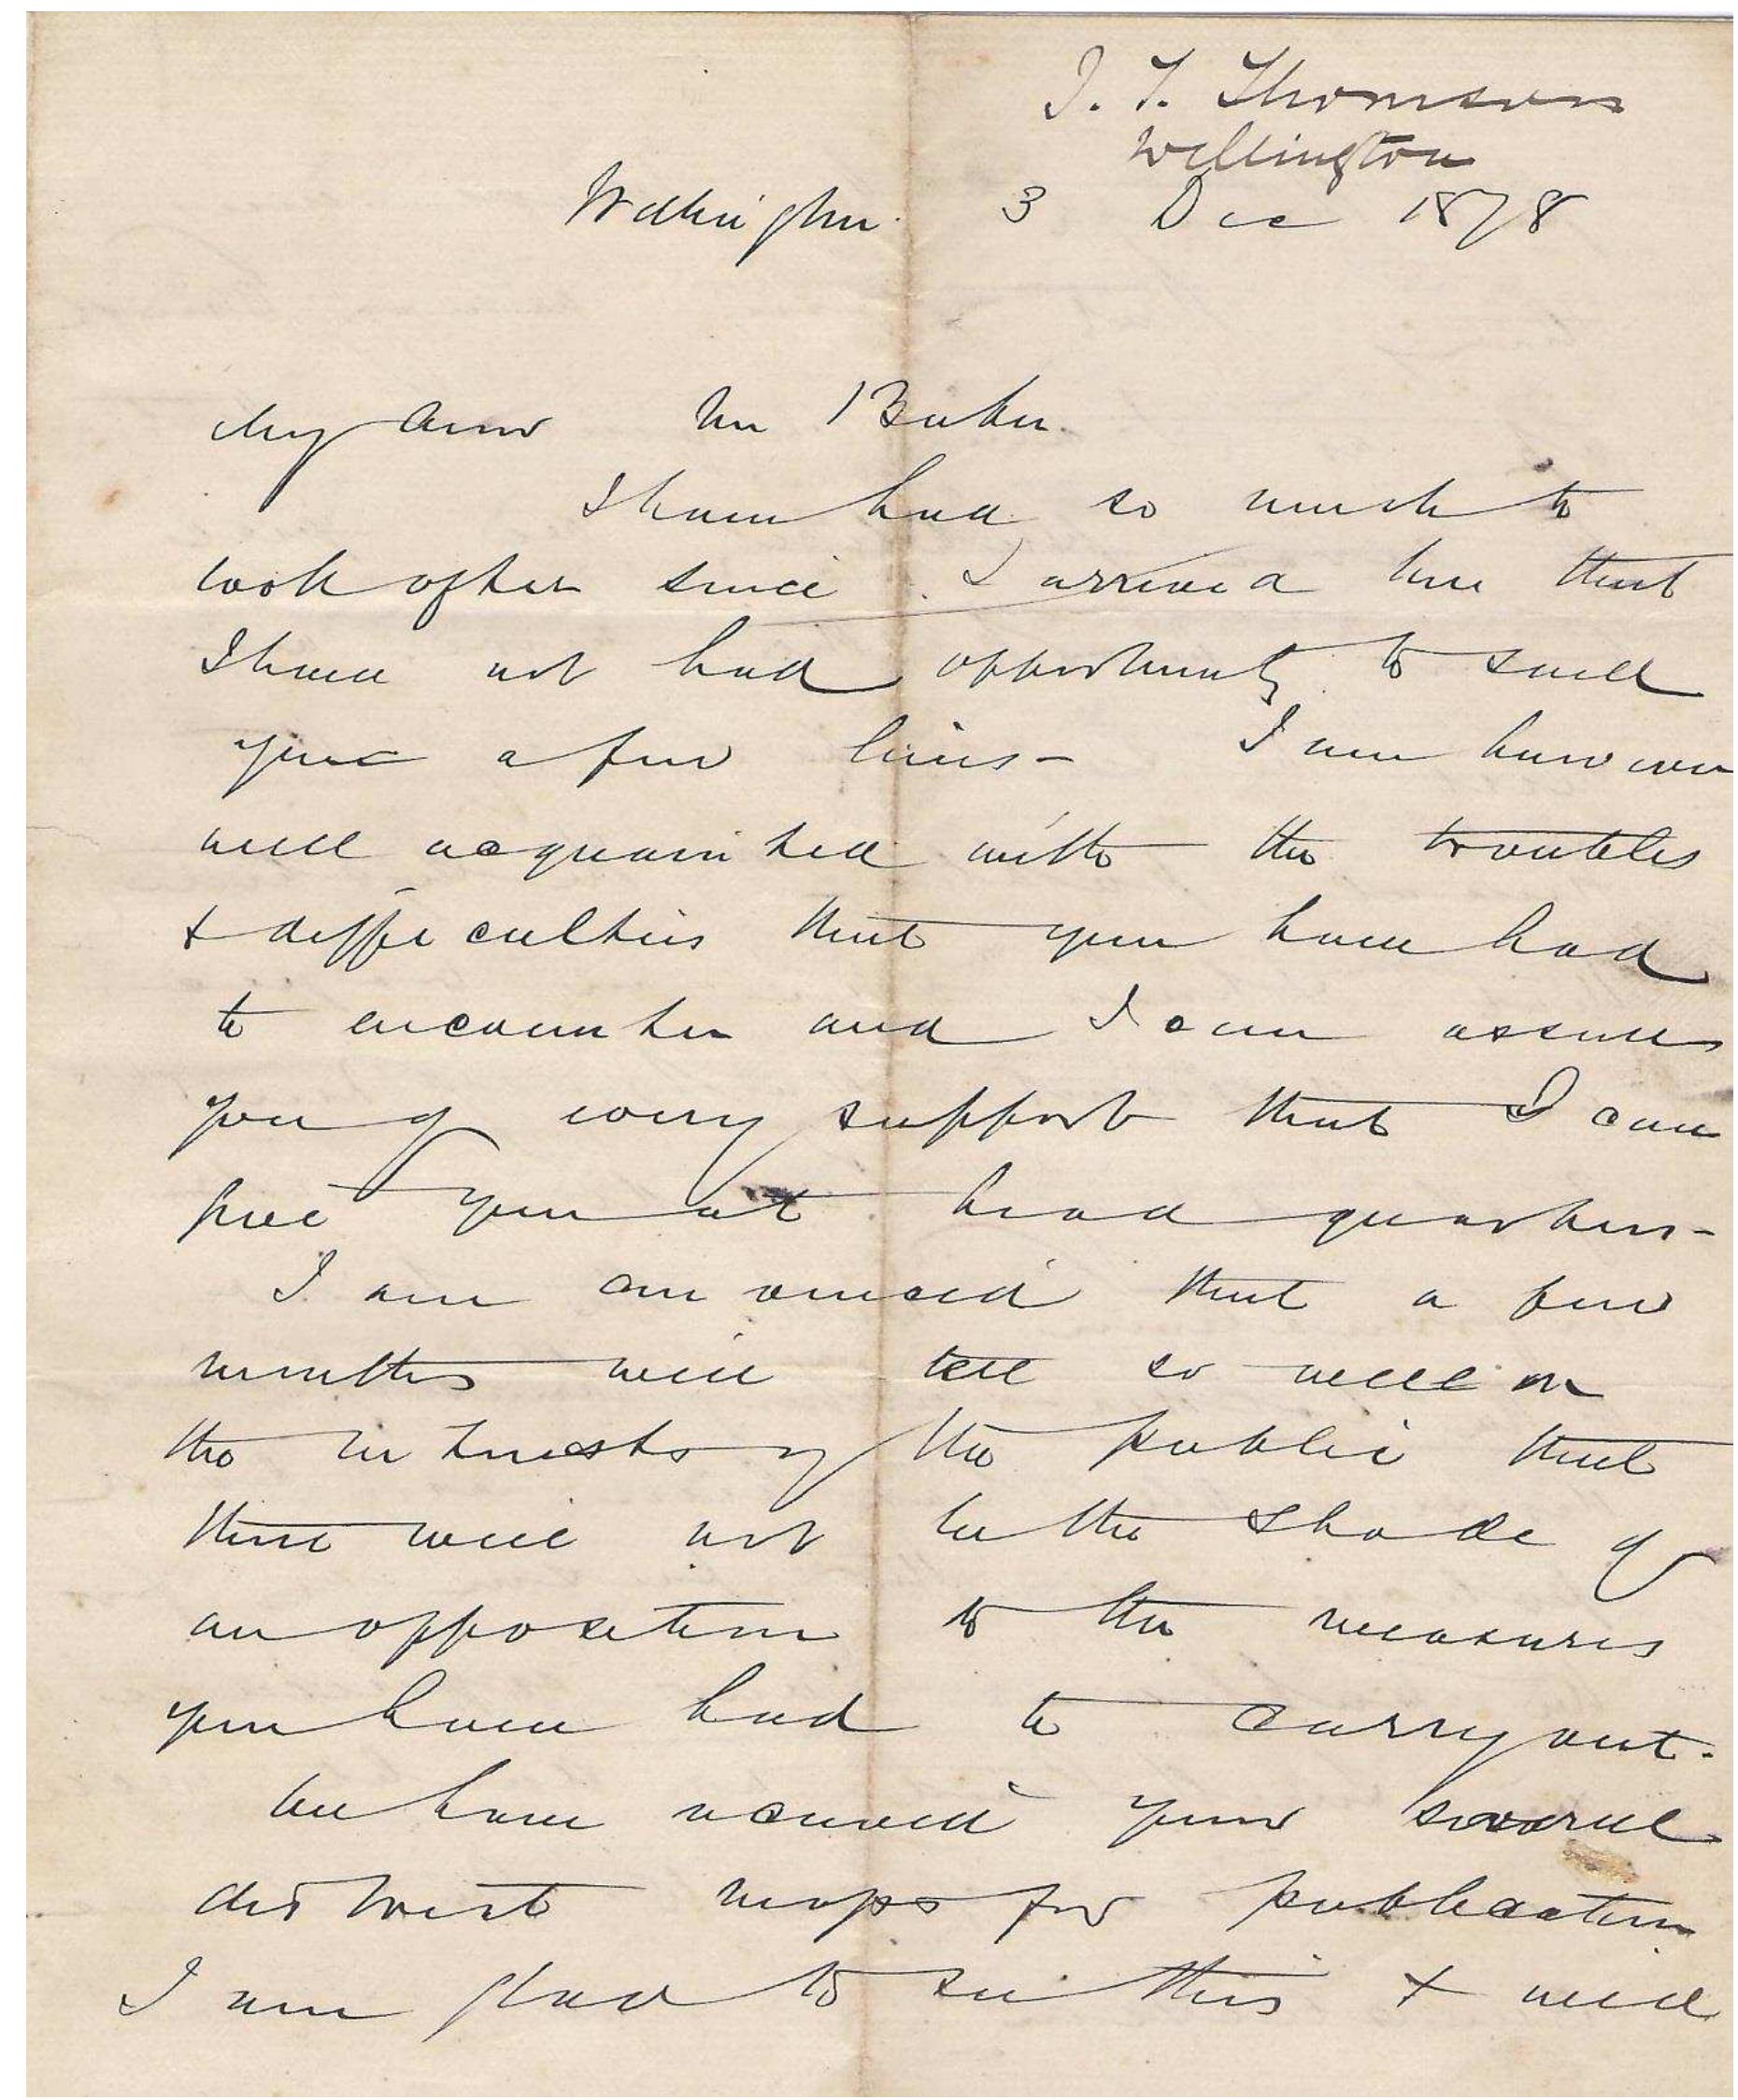 J. T. Thomson
Wellington
Wellington. 3 Dec 1878
My dear Mr Baker.
I have had so much to
look after since I arrived here that
I have not had opportunity to send
you a few lines - I am however
well acquainted with the troubles
& difficulties that you have had
to encounter and I can assure
you of every support that I can
give you at head quarters -
I am convinced that a few
months will tell so well on
the interests of the public that
there will not be the shade of
an opposition to the measures
you have had to carry out.
We have received your several
district maps for publication
I am glad to see this & will